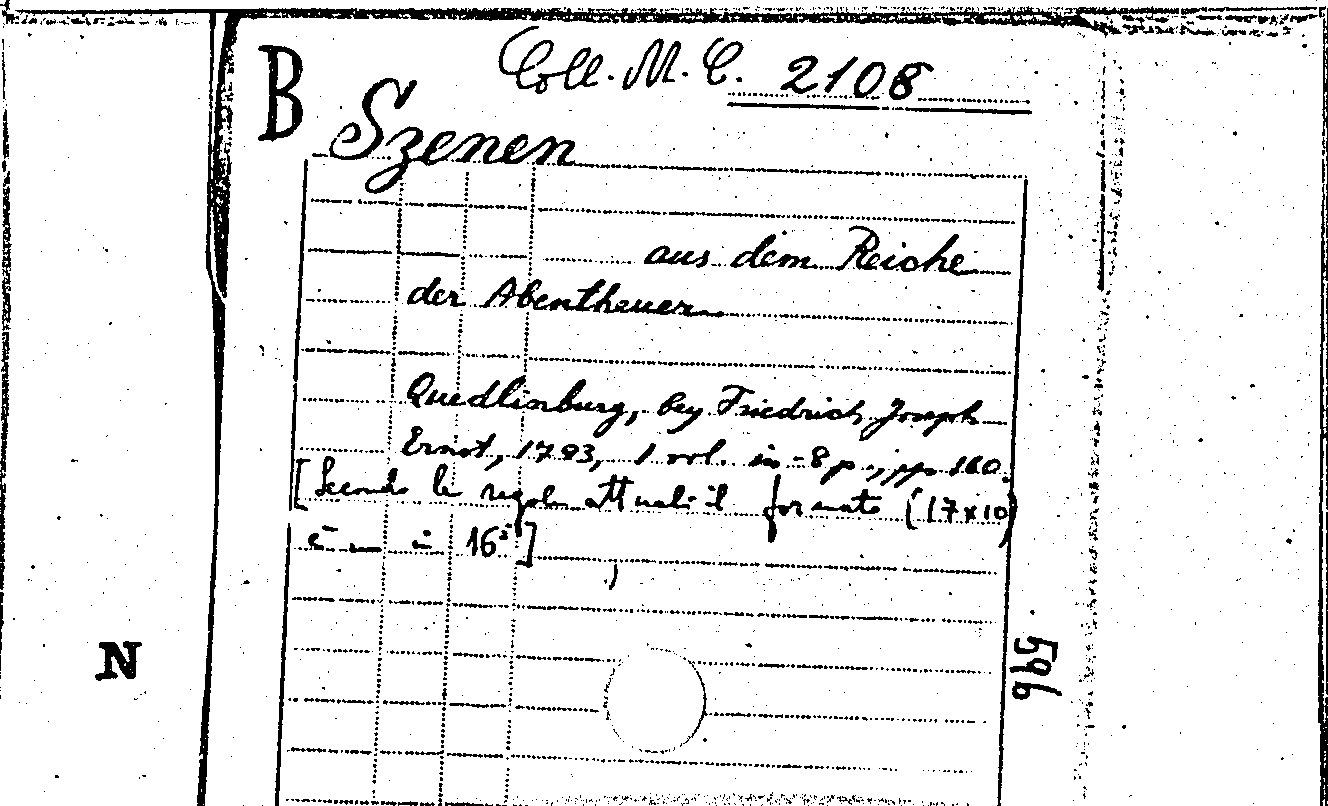 B Coll. M. C. 2108
Szenen
aus dem Reiche
der Abentheuer
Quedlinburg, bey Friedrich Joseph
Ernst, 1793, 1 vol. in -8 p., pp 160.
[Secondo le regole attuali il formato (17x10)
è un in 16°]
596
N